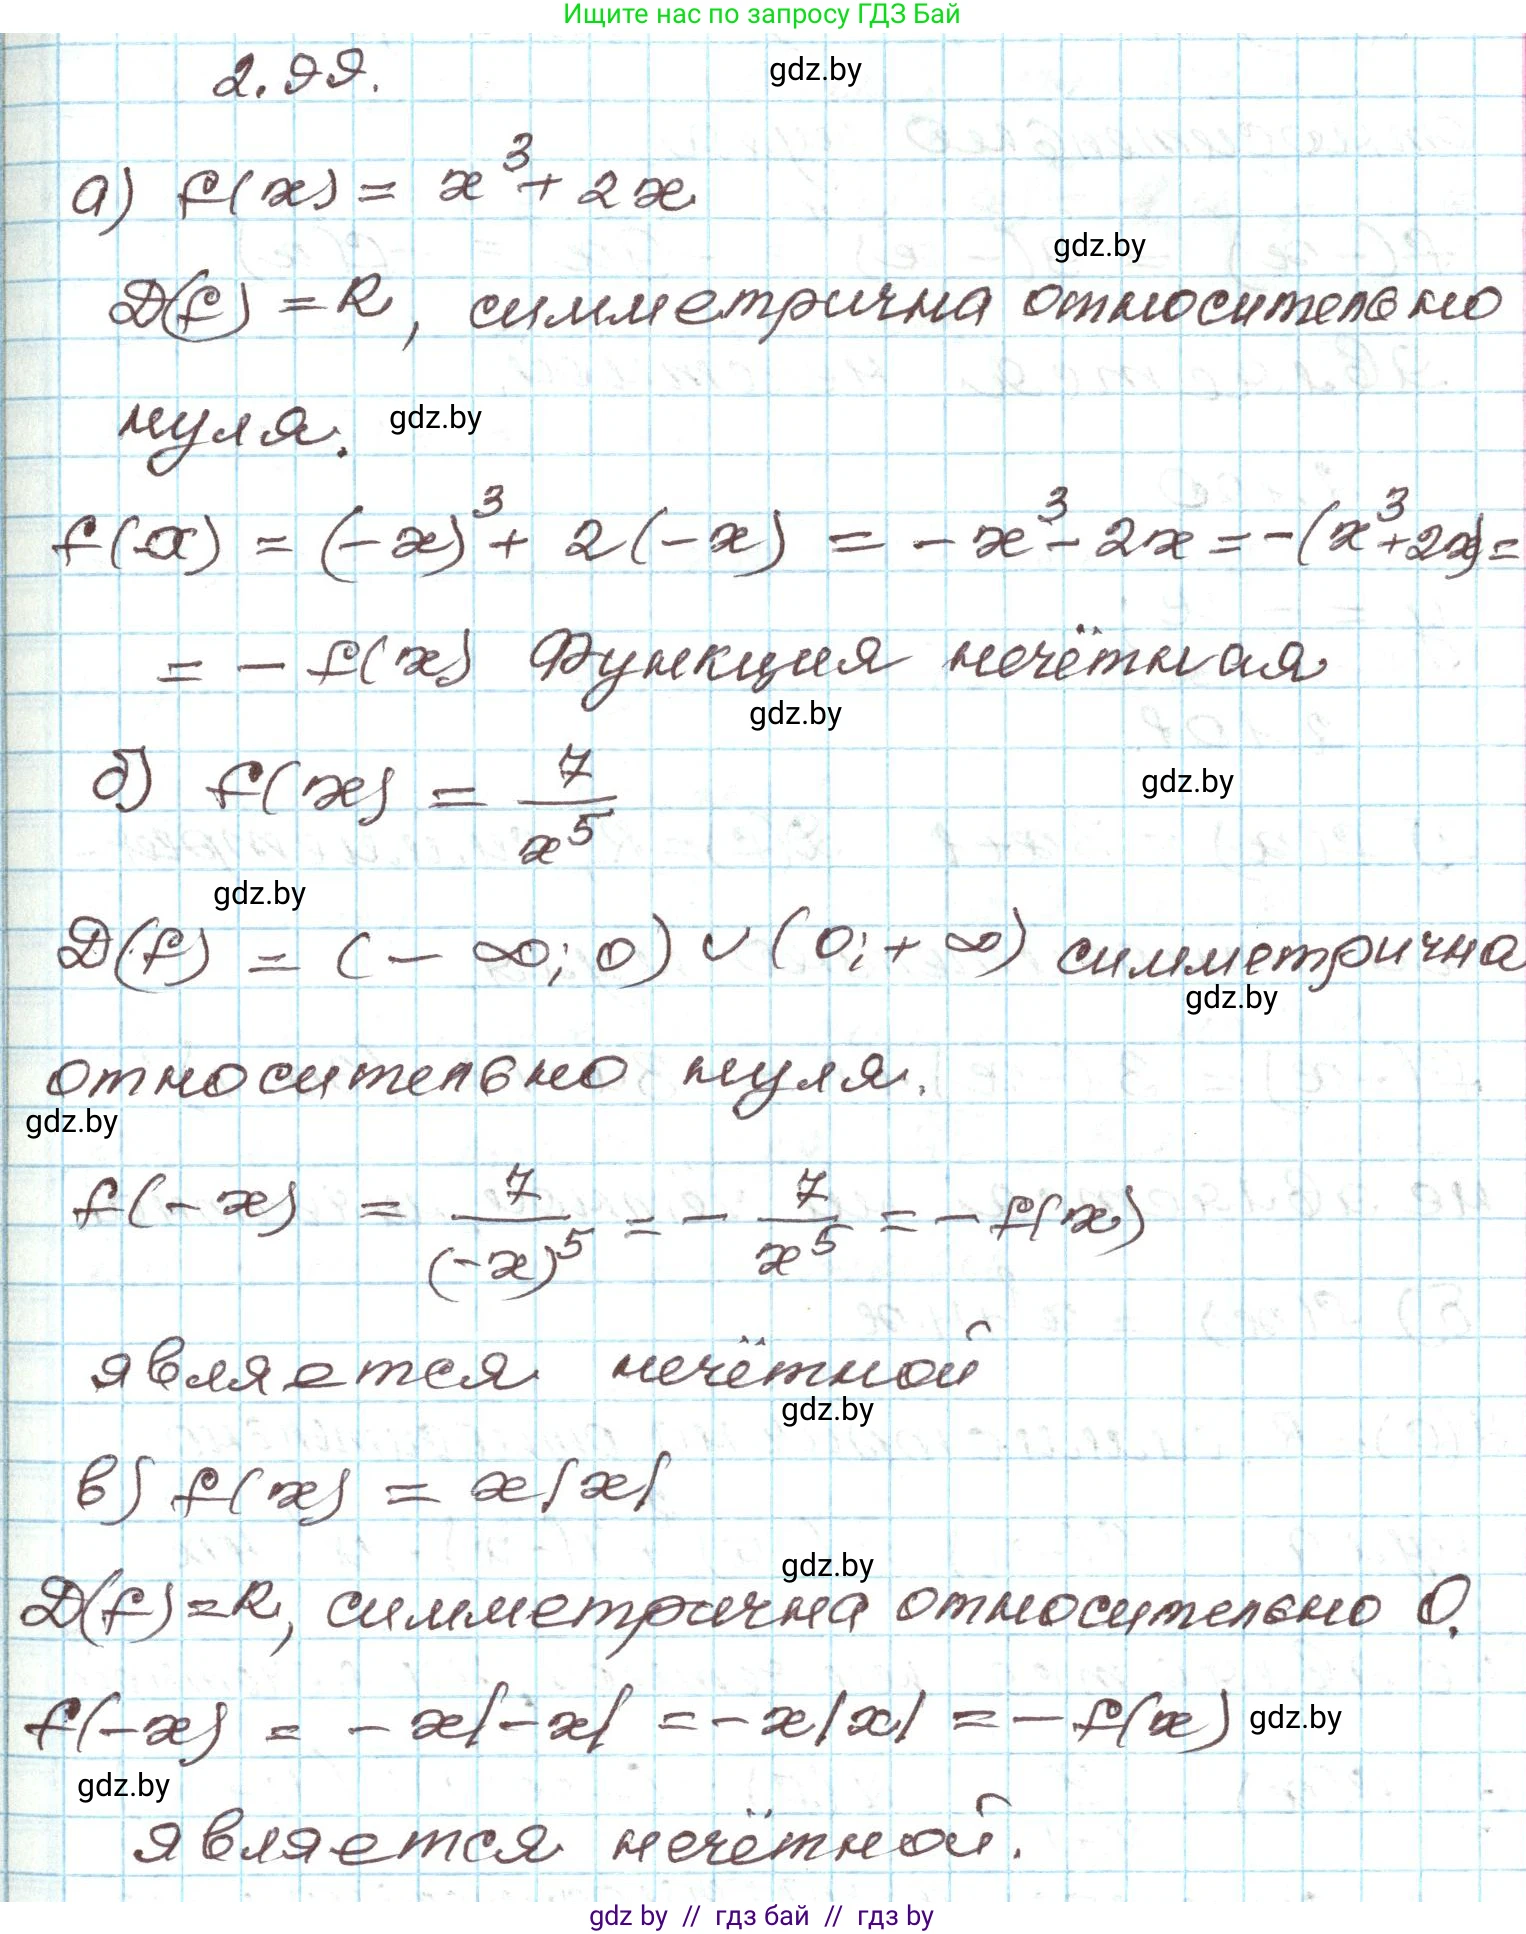 Ищите нас по запросу ГДЗ Бай
2.99.
gdz.by
а) f(x) = x³ + 2x
gdz.by
D(f) = R, симметрична относительно
нуля.
gdz.by
f(-x) = (-x)³ + 2(-x) = -x³ - 2x = -(x³ + 2x) =
= - f(x) Функция нечётная
gdz.by
б) f(x) = 7/x⁵
gdz.by
gdz.by
D(f) = (-∞; 0) ∪ (0; +∞) симметрична
gdz.by
относительно нуля.
gdz.by
f(-x) = 7/(-x)⁵ = - 7/x⁵ = - f(x)
является нечётной
gdz.by
в) f(x) = x|x|
gdz.by
D(f) = R, симметрична относительно 0.
f(-x) = - x|-x| = - x|x| = - f(x)
gdz.by
gdz.by
является нечётной.
gdz by // гдз бай // гдз by